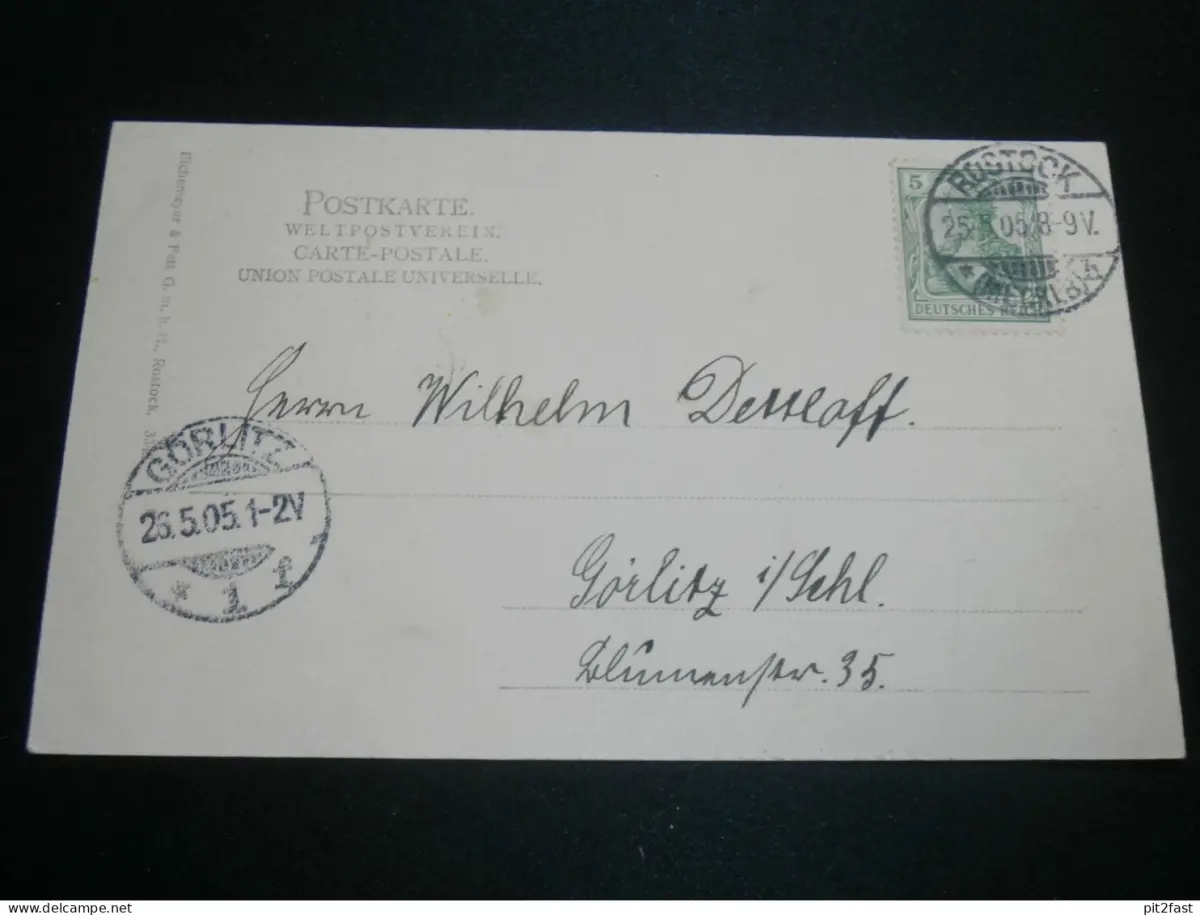 POSTKARTE.
WELTPOSTVEREIN.
CARTE-POSTALE.
UNION POSTALE UNIVERSELLE.
5
DEUTSCHES REICH
ROSTOCK
25.5.05 8-9V.
* (MECKLB) h
& Fett G. m. b. H., Rostock.
Herrn Wilhelm Dettloff.
GÖRLITZ
26.5.05.1-2V
* 1 f
Görlitz i/Schl.
Blumenstr. 35.
delcampe.net
pit2fast